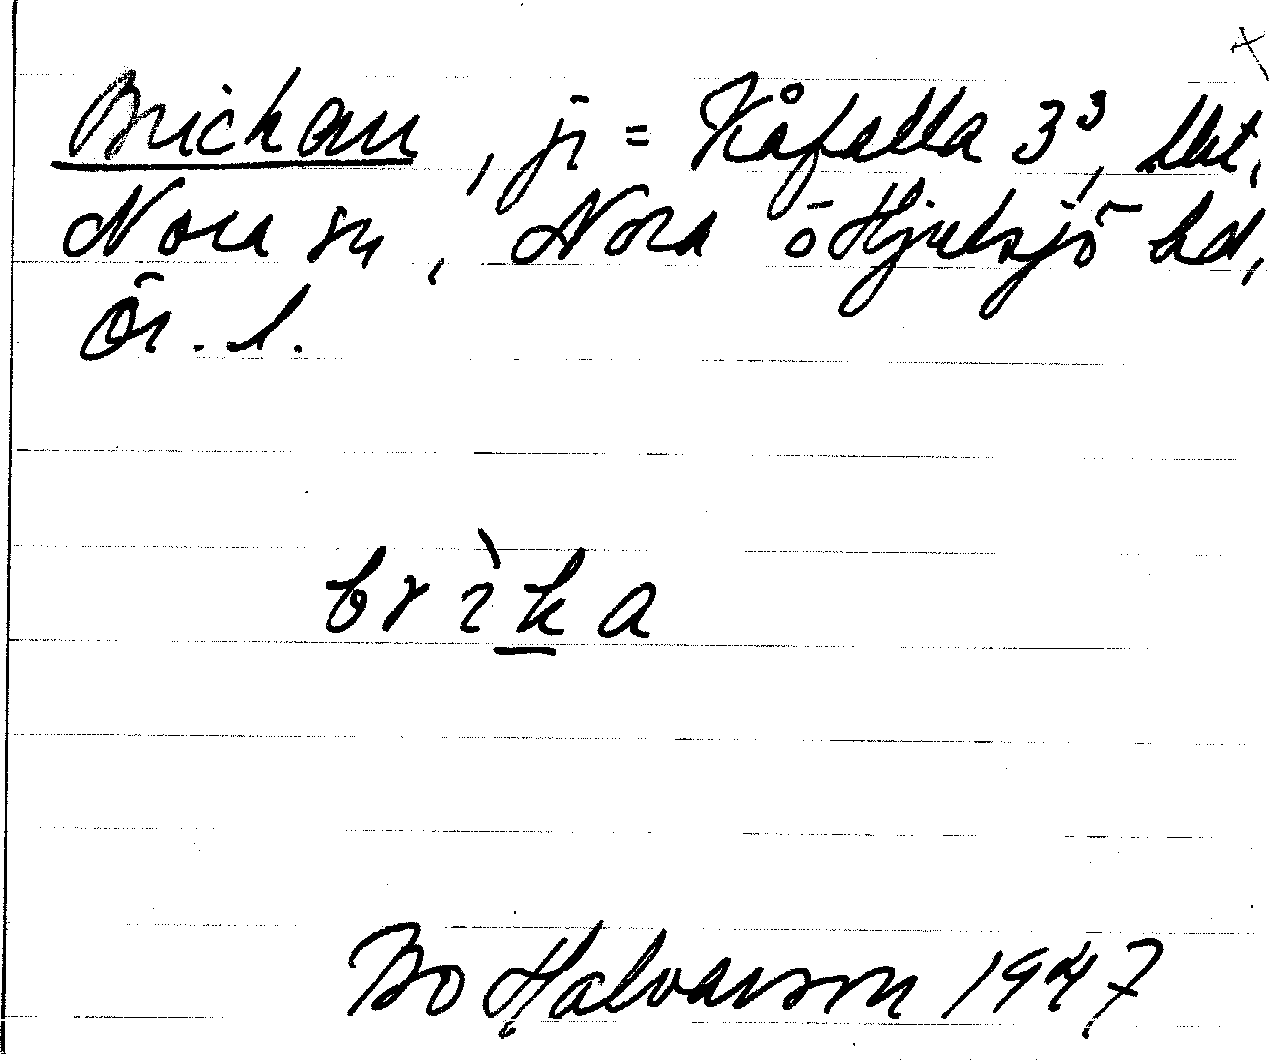 Brickan, jr = Kåfalla 3³, lht,
Nora sn, Nora ō Hjulsjō hd,
Ör. l.
brìka
Bo Halvarson 1947